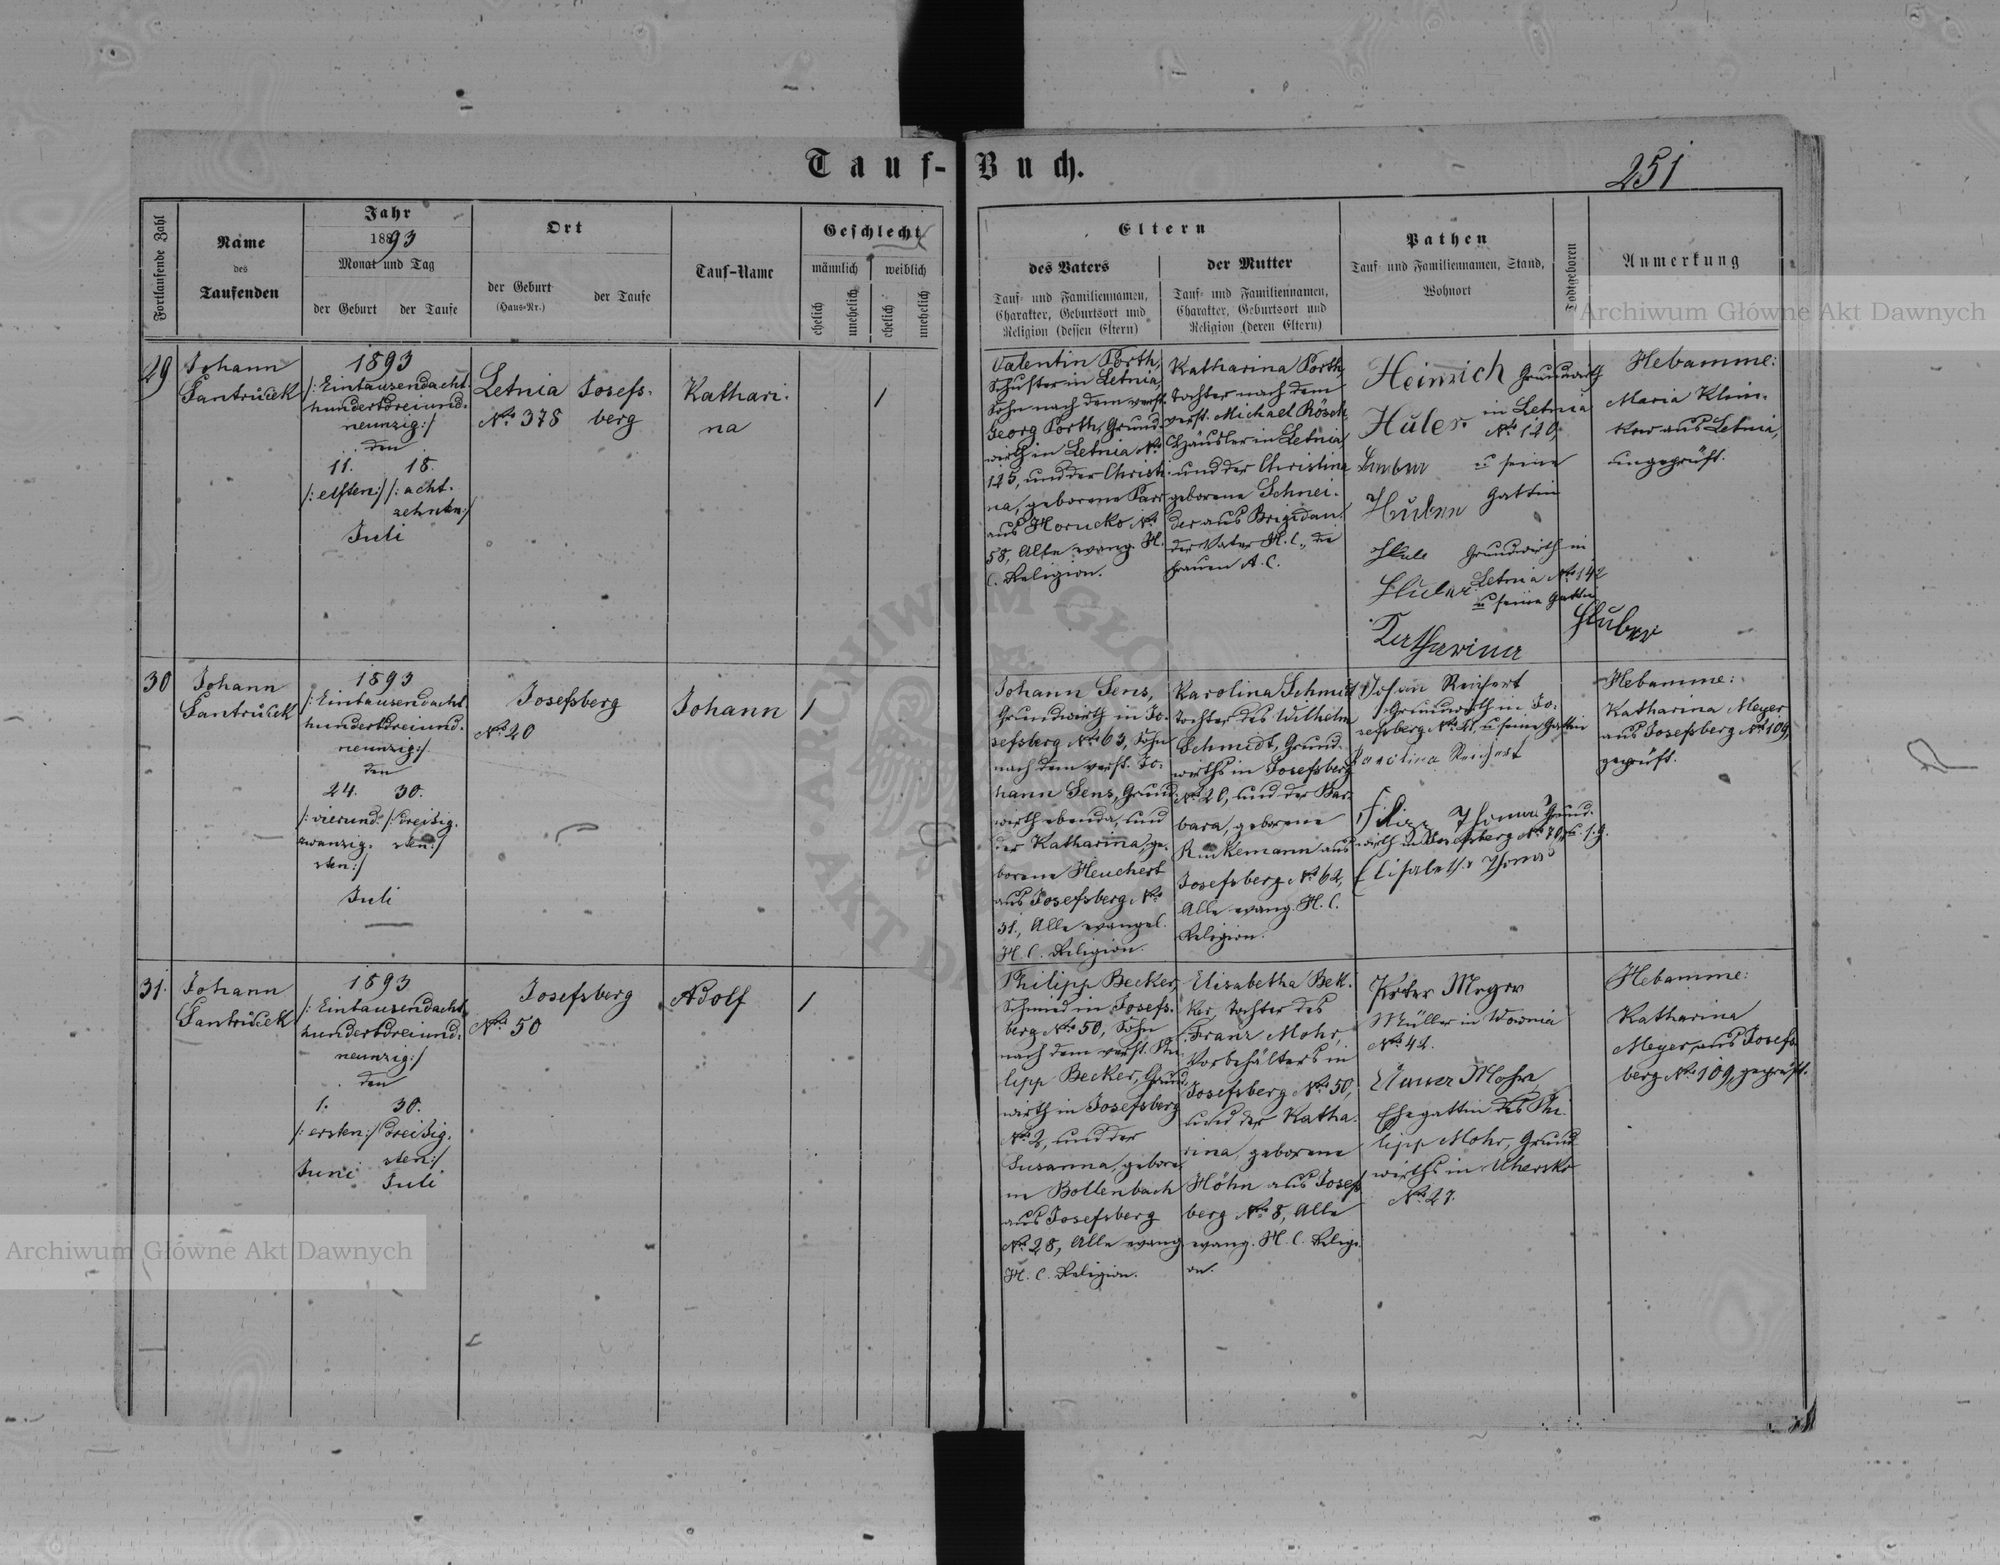 Tauf-Buch.
251
Fortlaufende Zahl
Name
des
Taufenden
Jahr
1893
Monat und Tag
der Geburt
der Taufe
Ort
der Geburt
(Haus-Nr.)
der Taufe
Tauf-Name
Geschlecht
männlich
weiblich
ehelich
unehelich
ehelich
unehelich
Eltern
des Vaters
Tauf- und Familiennamen,
Charakter, Geburtsort und
Religion (dessen Eltern)
der Mutter
Tauf- und Familiennamen,
Charakter, Geburtsort und
Religion (deren Eltern)
Pathen
Tauf- und Familiennamen, Stand,
Wohnort
Todtgeboren
Anmerkung
29
Johann
Santrůček
1893
/: Eintausendacht-
hundertdreiund-
neunzig:/
den
11. 18.
/: elften:/ /: acht-
zehnten:/
Juli
Letnia
No 378
Josefs-
berg
Kathari-
na
1
Valentin Porth,
Schuster in Letnia,
Sohn nach dem verst.
Georg Porth, Grund-
wirth in Letnia No
125, und der Christi-
na, geborene Parr
aus Horucko No
58, Alle evang. H.
C. Religion.
Katharina Porth
Tochter nach dem
verst. Michael Rösch
Häusler in Letnia
und der Christina
geborene Schnei-
der aus Brigidau
der Vater H. C., die
Frauen A. C.
Heinrich Grundwirth
Huler in Letnia
No 120,
u seine
Gattin
Grundwirth in
Letnia No 142
u seine Gattin
Katharina Huber
Hebamme:
Maria Klim-
kow aus Letnia,
ungeprüft.
30
Johann
Santrůček
1893
/: Eintausendacht-
hundertdreiund-
neunzig:/
den
24. 30.
/: vierund- /: dreißig-
zwanzig- sten:/
sten:/
Juli
Josefsberg
No 20
Johann
1
Johann Sens,
Grundwirth in Jo-
sefsberg No 63, Sohn
nach dem verst. Jo-
hann Sens, Grund-
wirth ebenda, und
der Katharina, ge-
borene Heuchert
aus Josefsberg No
31., Alle evangel.
H. C. Religion.
Karolina Schmidt
Tochter des Wilhelm
Schmidt, Grund-
wirths in Josefsberg
No 20, und der Bar-
bara, geborene
Rinkemann aus
Josefsberg No 62,
Alle evang. H. C.
Religion.
Johan Reichert
Grundwirth in Jo-
sefsberg No 21, u seine Gattin
Karolina Reichert
Filipp Thomas Grund-
wirth in Josefsberg No 70, u. s. g.
Elisabetha Thomas
Hebamme:
Katharina Meyer
aus Josefsberg No 109,
geprüft.
31.
Johann
Santrůček
1893
/: Eintausendacht-
hundertdreiund-
neunzig:/
den
1. 30.
/: ersten:/ dreißig-
sten:/
Juni Juli
Josefsberg
No 50
Adolf
1
Philipp Becker,
Schmied in Josefs-
berg No 50, Sohn
nach dem verst. Phi-
lipp Becker, Grund-
wirth in Josefsberg
No 2, und der
Susanna, gebore-
ne Bollenbach
aus Josefsberg
No 28, Alle evang.
H. C. Religion.
Elisabetha Bek-
ker, Tochter des
Franz Mohr,
Vorbehälters in
Josefsberg No 50,
und der Katha-
rina, geborene
Höhn aus Josefs-
berg No 8, Alle
evang. H. C. Religi-
on.
Peter Meyer
Müller in Wownia
No 42.
Mohr
Ehegattin des Phi-
lipp Mohr, Grund-
wirths in Uhersko
No 27.
Hebamme:
Katharina
Meyer, aus Josefs-
berg No 109, geprüft.
Archiwum Główne Akt Dawnych
Archiwum Główne Akt Dawnych